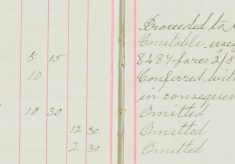 Proceeded to
Constable
5 15 8484 fares 2/3
10 Conferred with
in consequen
10 30 Omitted
12 30 Omitted
2 30 Omitted